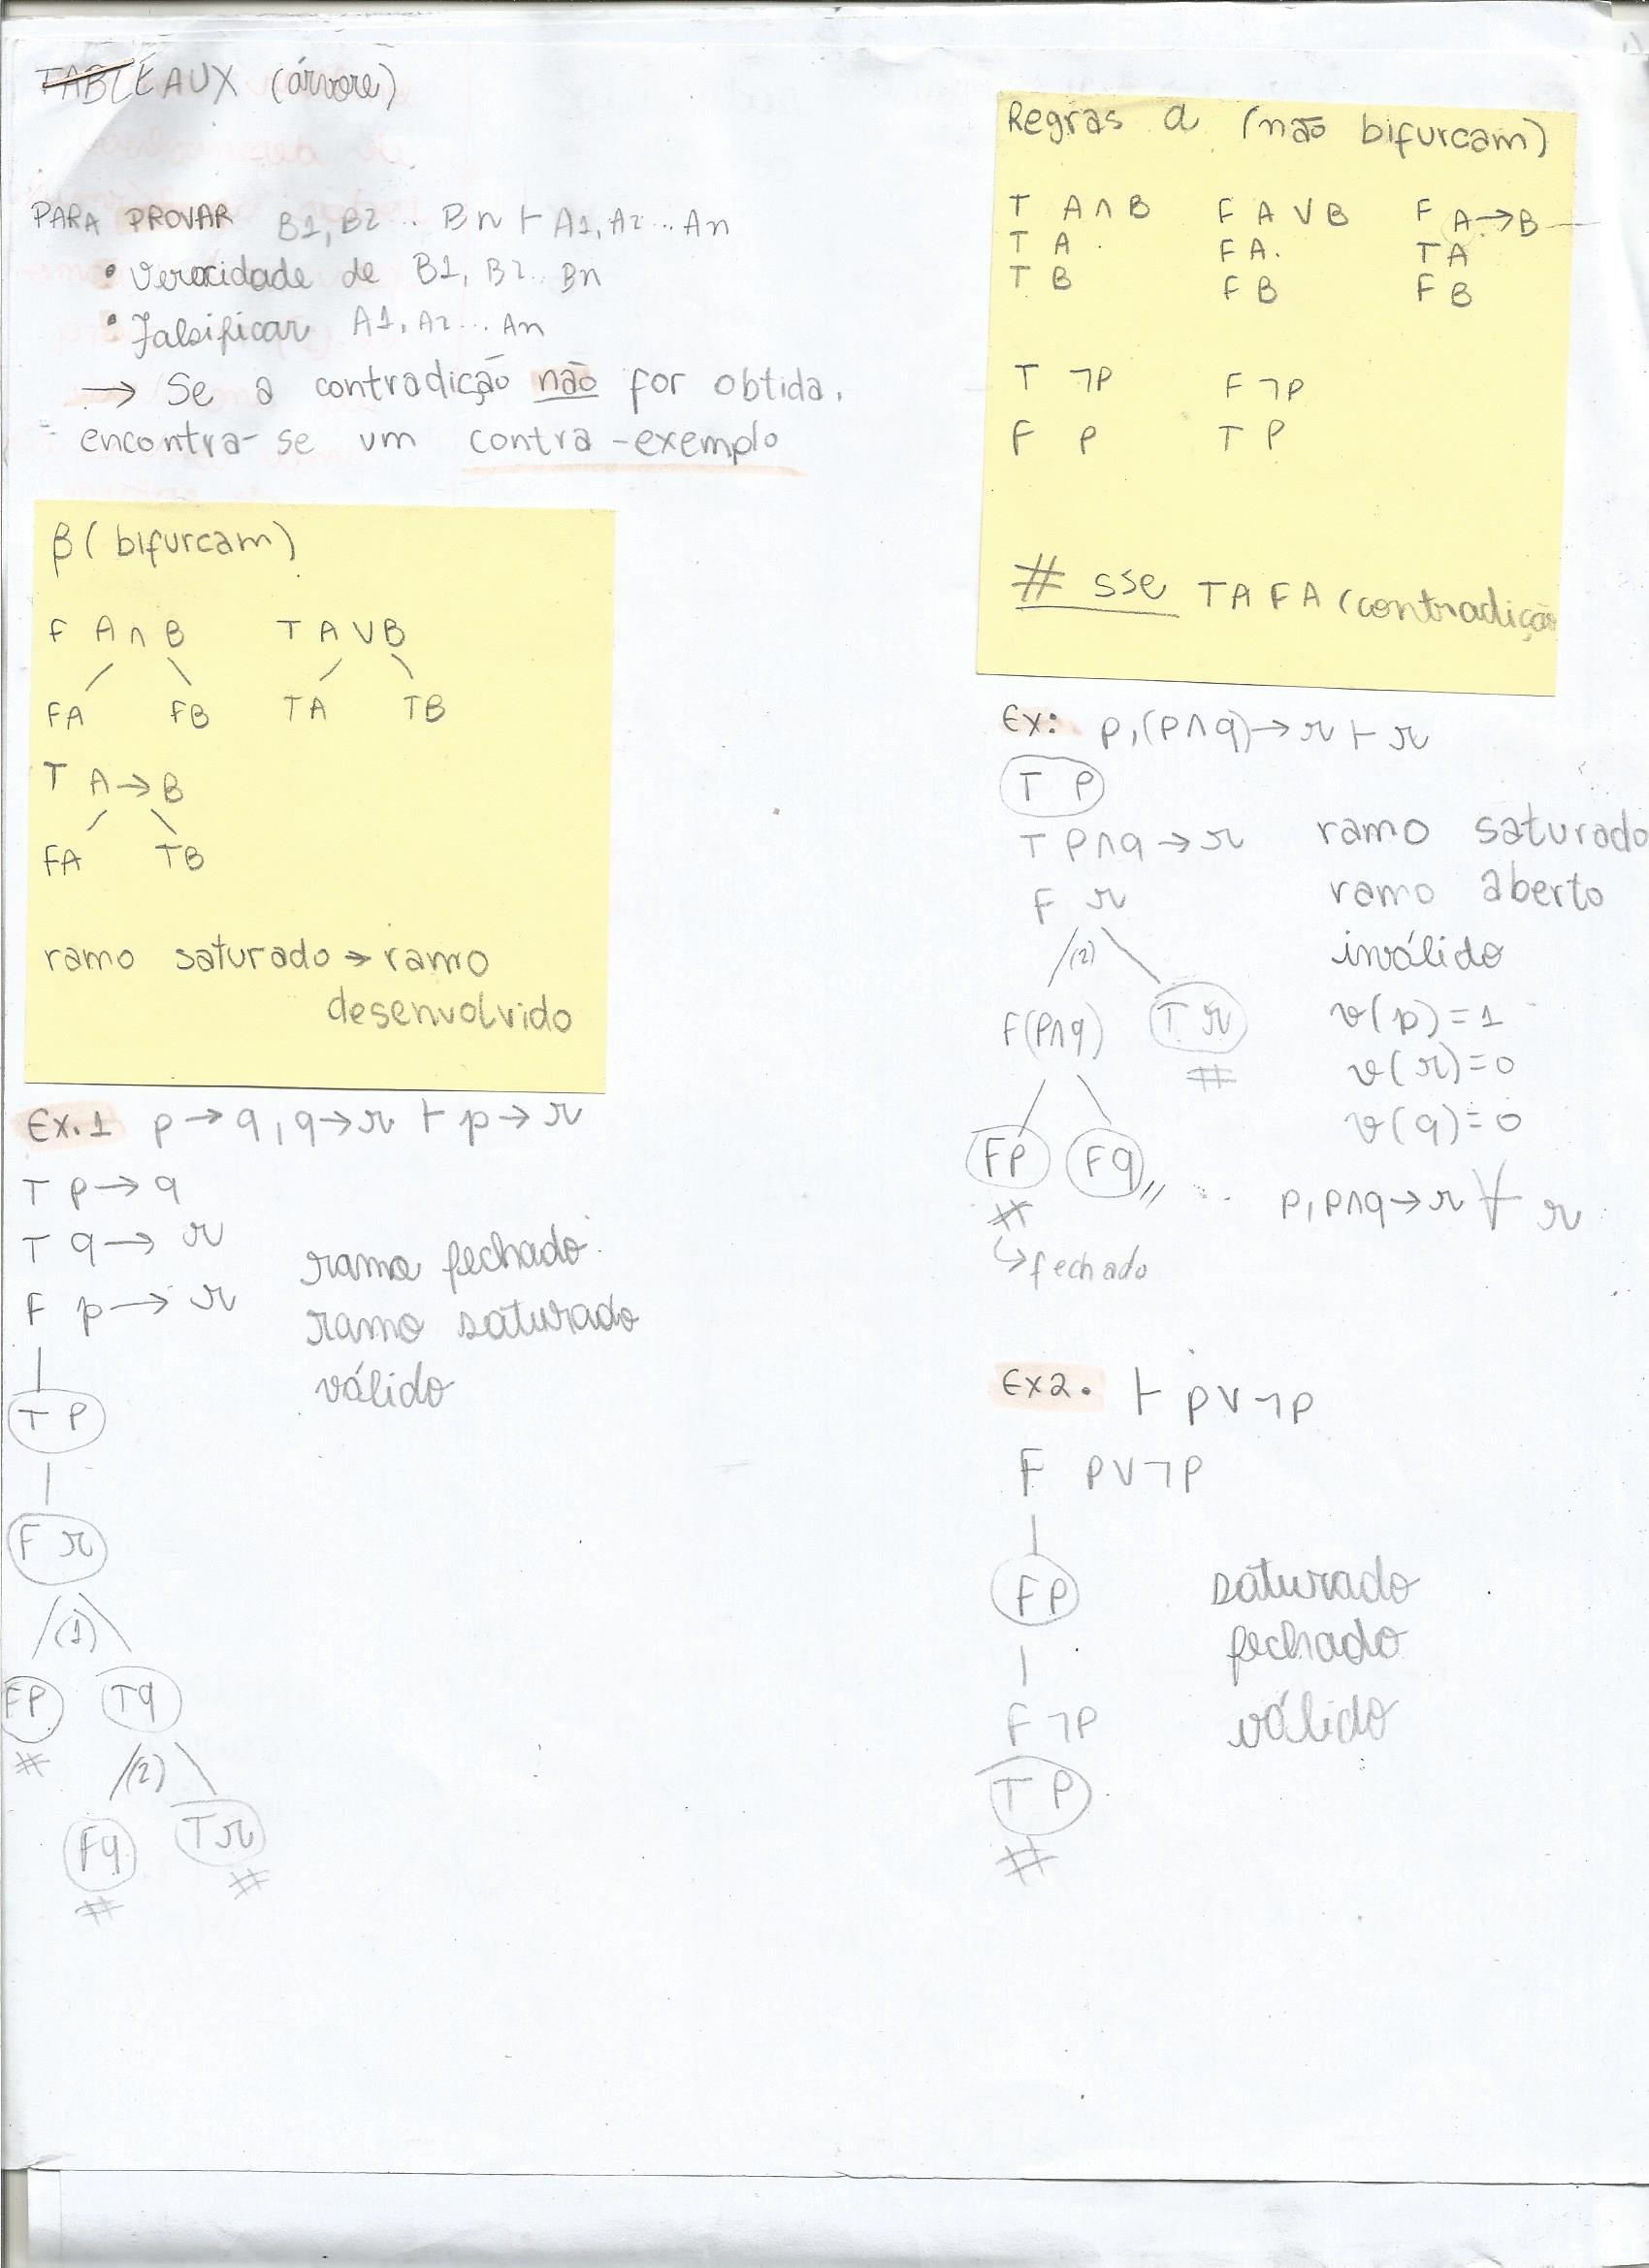 TABLEAUX (árvore)
PARA PROVAR B1, B2 .. Bn ⊢ A1, A2 ... An
• Veracidade de B1, B2.. Bn
• Falsificar A1, A2 ... An
→ Se a contradição não for obtida,
encontra-se um contra-exemplo
β (bifurcam)
F A∧B T A∨B
FA FB TA TB
T A→B
FA TB
ramo saturado → ramo
desenvolvido
Ex.1 p→q, q→r ⊢ p→r
T p→q
T q→r
F p→r
ramo fechado
ramo saturado
válido
T P
F r
(1)
FP Tq
# (2)
Fq Tr
# #
Regras α (não bifurcam)
T A∧B F A∨B F A→B
T A F A. TA
T B F B F B
T ¬P F ¬P
F P T P
# sse TA FA (contradição
Ex: p, (p∧q)→r ⊢ r
T P
T P∧q→r
F r
(2)
F(P∧q) T r
#
FP Fq
#
↳ fechado
ramo saturado
ramo aberto
inválido
v(p)=1
v(r)=0
v(q)=0
p, p∧q→r ⊬ r
Ex2. ⊢ p∨¬p
F P∨¬P
FP
F ¬P
T P
#
saturado
fechado
válido